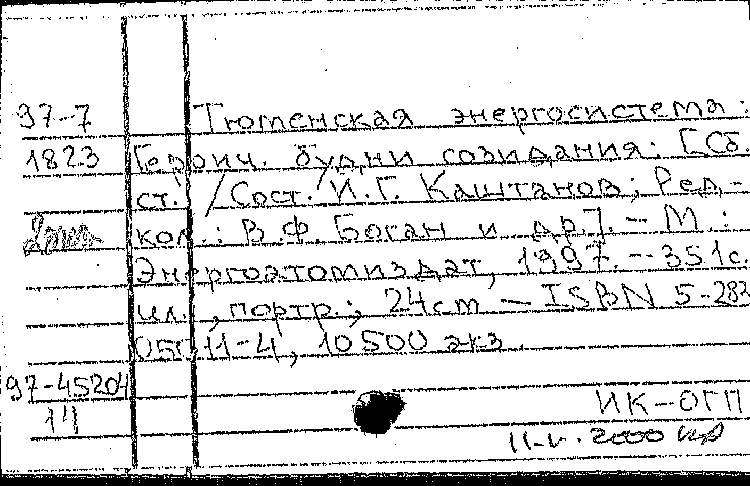 97-7 Тюменская энергосистема:
1823 Героич. будни созидания: [Сб.
ст. / Сост. И.Г. Каштанов; Ред-
кол.: В.Ф. Боган и др.]. - М.:
Энергоатомиздат, 1997. - 351 с.
ил., портр.; 24 см - ISBN 5-283
05011-4, 10500 экз.
97-45204
14
ИК-ОГП
11-V. 2000